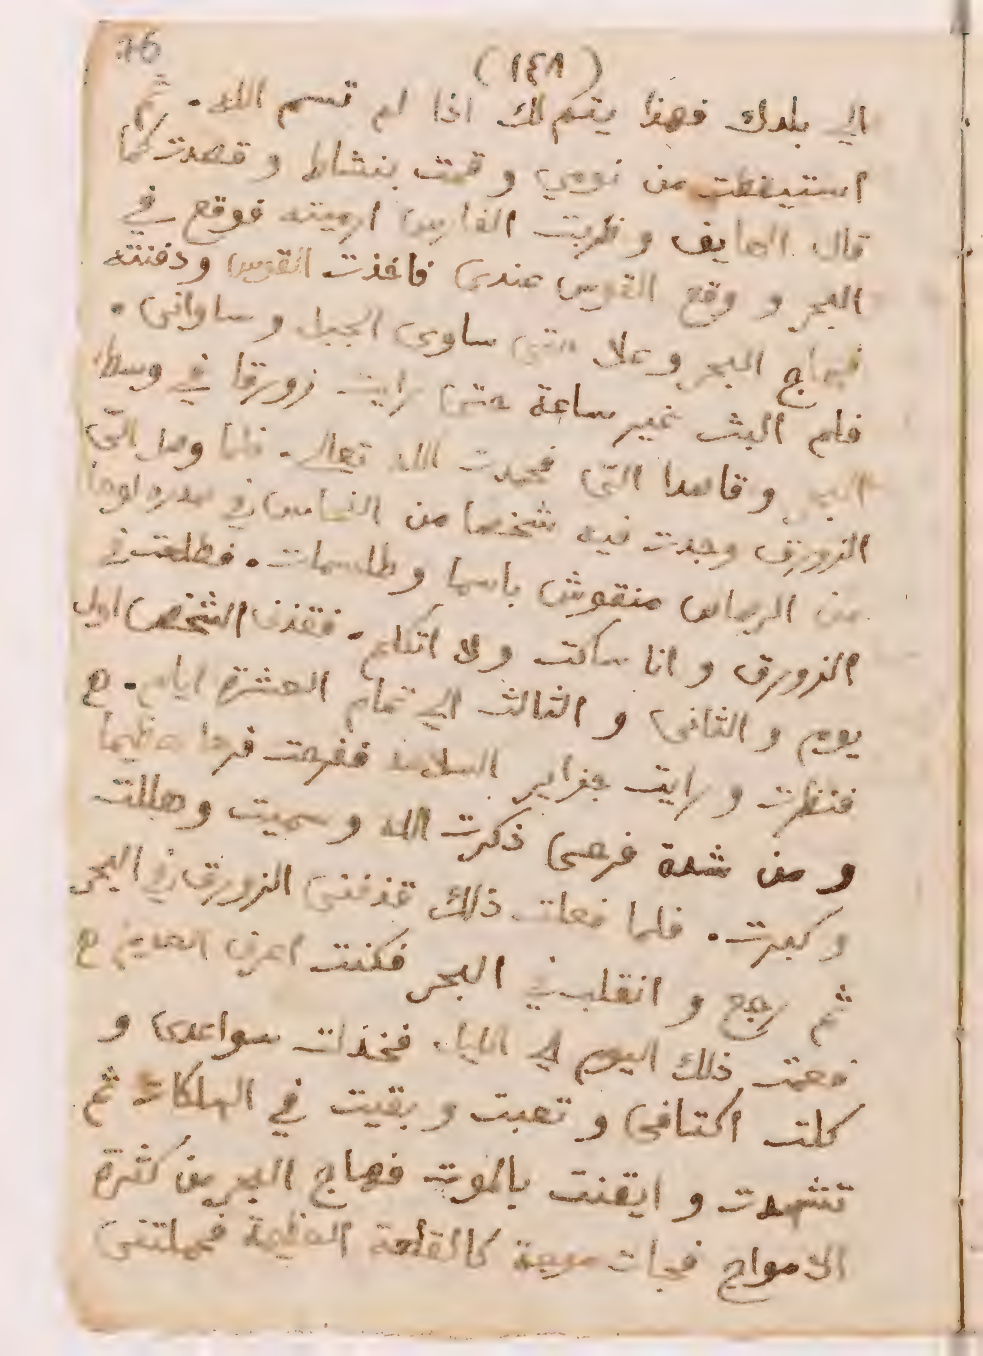 76
(١٤٨)
الى بلدك فهذا يتم لك اذا لم تسم الله. ثم
استيقظت من نومي وقمت بنشاط وقصدت كما
قال الهايف وضربت الفارس ارميته فوقع في
البحر و وقع القوس عندى فاخذت القوس ودفنته
فهاج البحر وعلا حتى ساوى الجبل وساوانى.
فلم البث غير ساعة حتى رايت زورقا في وسط
البحر وقاصدا التي فحمدت الله تعالى. فلما وصل التي
الزورق وجدت فيه شخصا من النحاس في صدره لوحا
من الرصاص منقوش باسما وطلسمات. فطلعت في
الزورق وانا ساكت ولا اتكلم. فقذف الشخص اول
يوم و الثانى و الثالث الى تمام العشرة ايام. ح
فنظرت و رايت جزاير السلامة ففرحت فرحا عظيما
و من شدة فرحى ذكرت الله وسميت وهللت
وكبرت. فلما فعلت ذلك قذفنى الزورق في البحر
ثم رجع و انقلب في البحر فكنت اعرف العديم ح
فعمت ذلك اليوم الى الليل. فخذلت سواعدى و
كلت اكتافى و تعبت و بقيت في الهلكات ثم
تشهدت و ايقنت بالموت فهاج البحر من كثرة
الامواج فجات موجة كالقلعة العظيمة فحملتنى